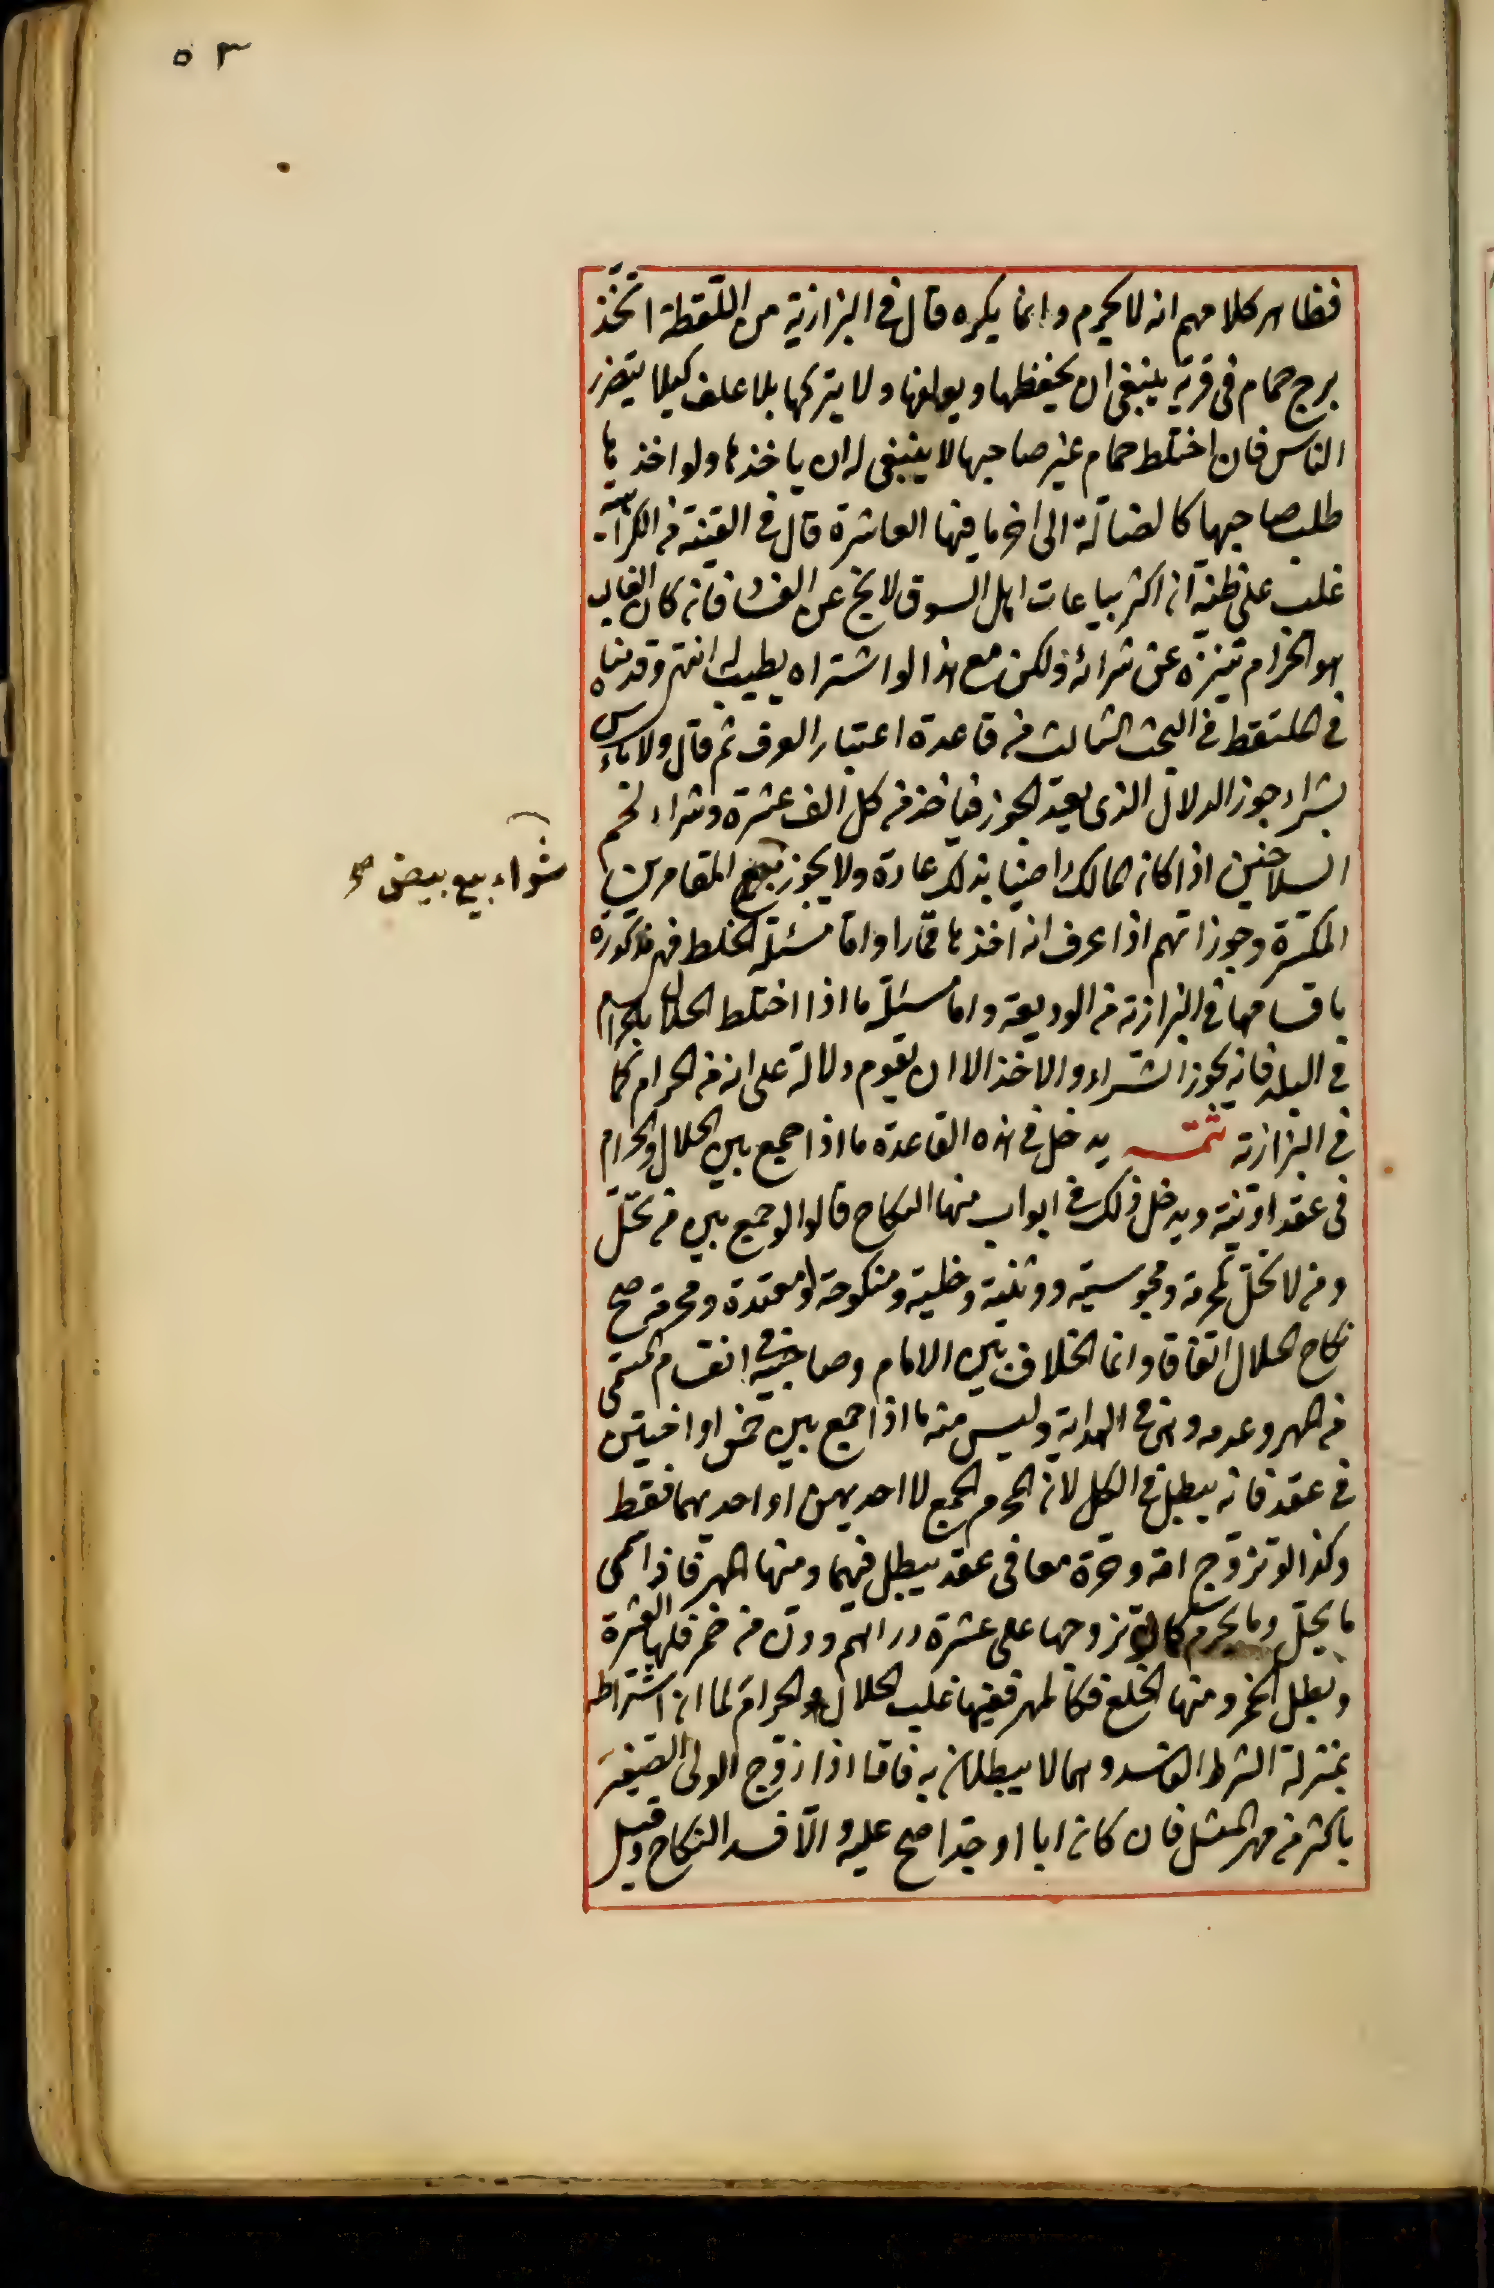 ٥٣
فظاهر كلامهم انه لا يحرم وانما يكره قال في البزازية من اللقطة اتخذ
برج حمام في قرية ينبغي ان يحفظها ويعلفها ولا يتركها بلا علف كيلا يتضرر
الناس فان اختلط حمام غير صاحبها لا ينبغي له ان ياخذها ولو اخذها
طلب صاحبها كالضالة الى اخر ما فيها العاشرة قال في القنية من الكراهية
غلب على ظنه ان اكثر بياعات اهل السوق لا يخ عن الفساد فان كان الغالب
هو الحرام تنزه عن شرائه ولكن مع هذا لو اشتراه يطيب له انتهى وقدمناه
في الملتقط في البحث الثالث من قاعدة اعتبار العرف ثم قال ولا باس
بشراء جوز الدلال الذي يعد الجوز فياخذ من كل الف عشرة وشراء لحم
السلاخين اذا كان المالك راضيا بذلك عادة ولا يجوز بيع المقامرين
شراء بيع بيض صح
المكسرة وجوزاتهم اذا عرف انه اخذها قمارا واما مسئلة الخلط فهي مذكورة
باقسامها في البزازية من الوديعة واما مسئلة ما اذا اختلط الحلال بالحرام
في البلد فانه يجوز الشراء والاخذ الا ان يقوم دلالة على انه من الحرام كما
في البزازية تتمة يدخل في هذه القاعدة ما اذا جمع بين الحلال والحرام
في عقد او نية ويدخل ذلك في ابواب منها النكاح قالوا لو جمع بين من تحل
ومن لا تحل كمحرمة ومجوسية ووثنية وخلية ومنكوحة او معتدة ومحرمة صح
نكاح الحلال اتفاقا وانما الخلاف بين الامام وصاحبيه في انقسام المسمى
من المهر وعدمه وهي في الهداية وليس منه ما اذا جمع بين خمس او اختين
في عقد فانه يبطل في الكل لان المحرم الجمع لا احديهن او احديهما فقط
وكذا لو تزوج امة وحرة معا في عقد يبطل فيهما ومنها المهر فاذا سمى
ما يحل وما يحرم كان تزوجها على عشرة دراهم ودن من خمر فلها العشرة
وبطل الخمر ومنها الخلع فكالمهر ففيها غلب الحلال الحرام لما ان اشتراط
بمنزلة الشرط الفاسد وهما لا يبطلان به فاما اذا زوج الولي الصغير
باكثر من مهر المثل فان كان ابا او جدا صح عليه والا فسد النكاح وقيل